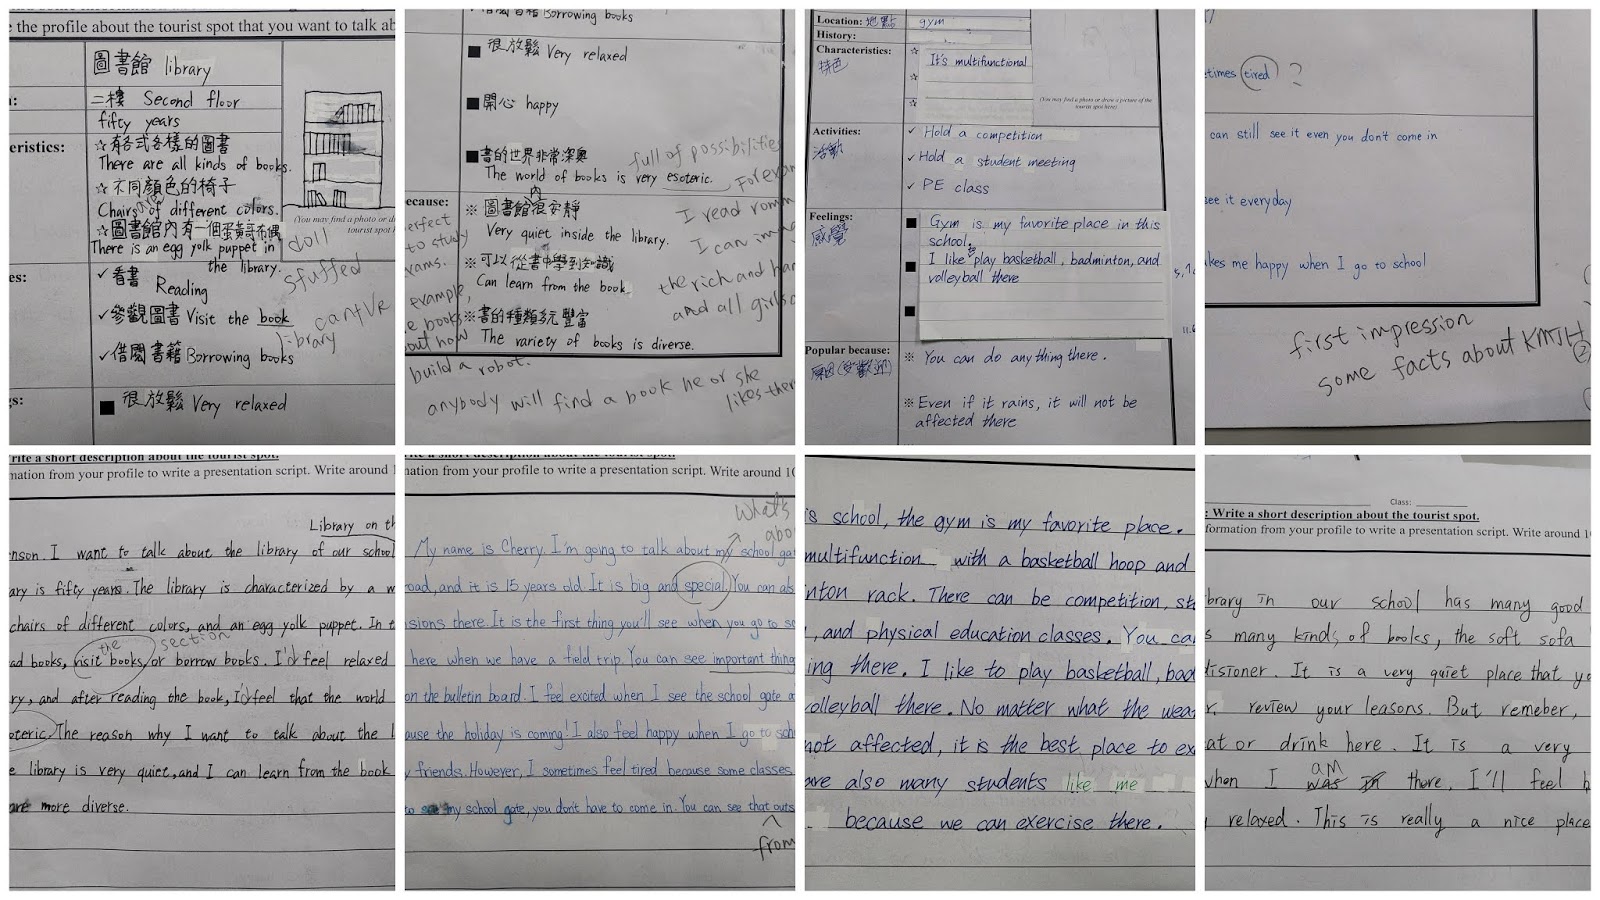 e the profile about the tourist spot that you want to talk ab
圖書館 library
二樓 Second floor
fifty years
eristics:
☆有各式各樣的圖書
There are all kinds of books.
☆不同顏色的椅子
Chairs of different colors.
are
(You may find a photo or d
tourist spot
☆圖書館內有一個蛋黃哥布偶
There is an egg yolk puppet in
the library.
doll
stuffed
es:
✓看書
Reading
✓參觀圖書 Visit the book
library
✓借閱書籍 Borrowing books
■ 很放鬆 Very relaxed
借閱書籍 Borrowing books
■ 很放鬆 Very relaxed
■ 開心 happy
■書的世界非常深奧
full of possibilities
The world of books is very esoteric.
ecause:
※ 圖書館很安靜
Very quiet inside the library.
※可以從書中學到知識
Can learn from the book.
※書的種類多元豐富
The variety of books is diverse.
erfect
to study
xams.
example,
e books
out how
build a robot.
I read rom
I can im
the rich and han
and all girls
anybody will find a book he or she
likes ther
Location: 地點 gym
History:
Characteristics: ☆ It's multifunctional
特色
☆
☆
(You may find a photo or draw a picture of the
tourist spot here)
Activities: ✓ Hold a competition
活動
✓ Hold a student meeting
✓ PE class
Feelings: ■ Gym is my favorite place in this
感覺
school.
to
■ I like play basketball, badminton, and
volleyball there
■
Popular because: ※ You can do anything there.
原因(受歡迎)
※ Even if it rains, it will not be
affected there
etimes tired ?
can still see it even you don't come in
see it everyday
kes me happy when I go to school
first impression
some facts about KMJH
rite a short description about the tourist spot.
mation from your profile to write a presentation script. Write around 1
Library on th
nson. I want to talk about the library of our school
ary is fifty years. The library is characterized by a w
chairs of different colors, and an egg yolk puppet. In t
the section
ad books, visit books, or borrow books. I'd feel relaxed
ry, and after reading the book, I'd feel that the world
oteric. The reason why I want to talk about the l
e library is very quiet, and I can learn from the book
are more diverse.
ite a short description about the tourist spot.
nation from your profile to write a presentation script. Write around 10
what's
abo
My name is Cherry. I'm going to talk about my school ga
oad, and it is 15 years old. It is big and special. You can als
sions there. It is the first thing you'll see when you go to sc
here when we have a field trip. You can see important thing
on the bulletin board. I feel excited when I see the school gate a
ause the holiday is coming! I also feel happy when I go to sch
y friends. However, I sometimes feel tired because some classes
to see my school gate, you don't have to come in. You can see that outs
from
is school, the gym is my favorite place.
multifunction with a basketball hoop and
nton rack. There can be competition, st
, and physical education classes. You ca
ing there. I like to play basketball, bad
olleyball there. No matter what the wea
not affected, it is the best place to ex
are also many students like me
because we can exercise there.
Class:
: Write a short description about the tourist spot.
formation from your profile to write a presentation script. Write around 10
ibrary in our school has many good
s many kinds of books, the soft sofa
disioner. It is a very quiet place that y
r, review your leasons. But remeber,
at or drink here. It is a very
am
when I was in there, I'll feel
relaxed. This is really a nice place